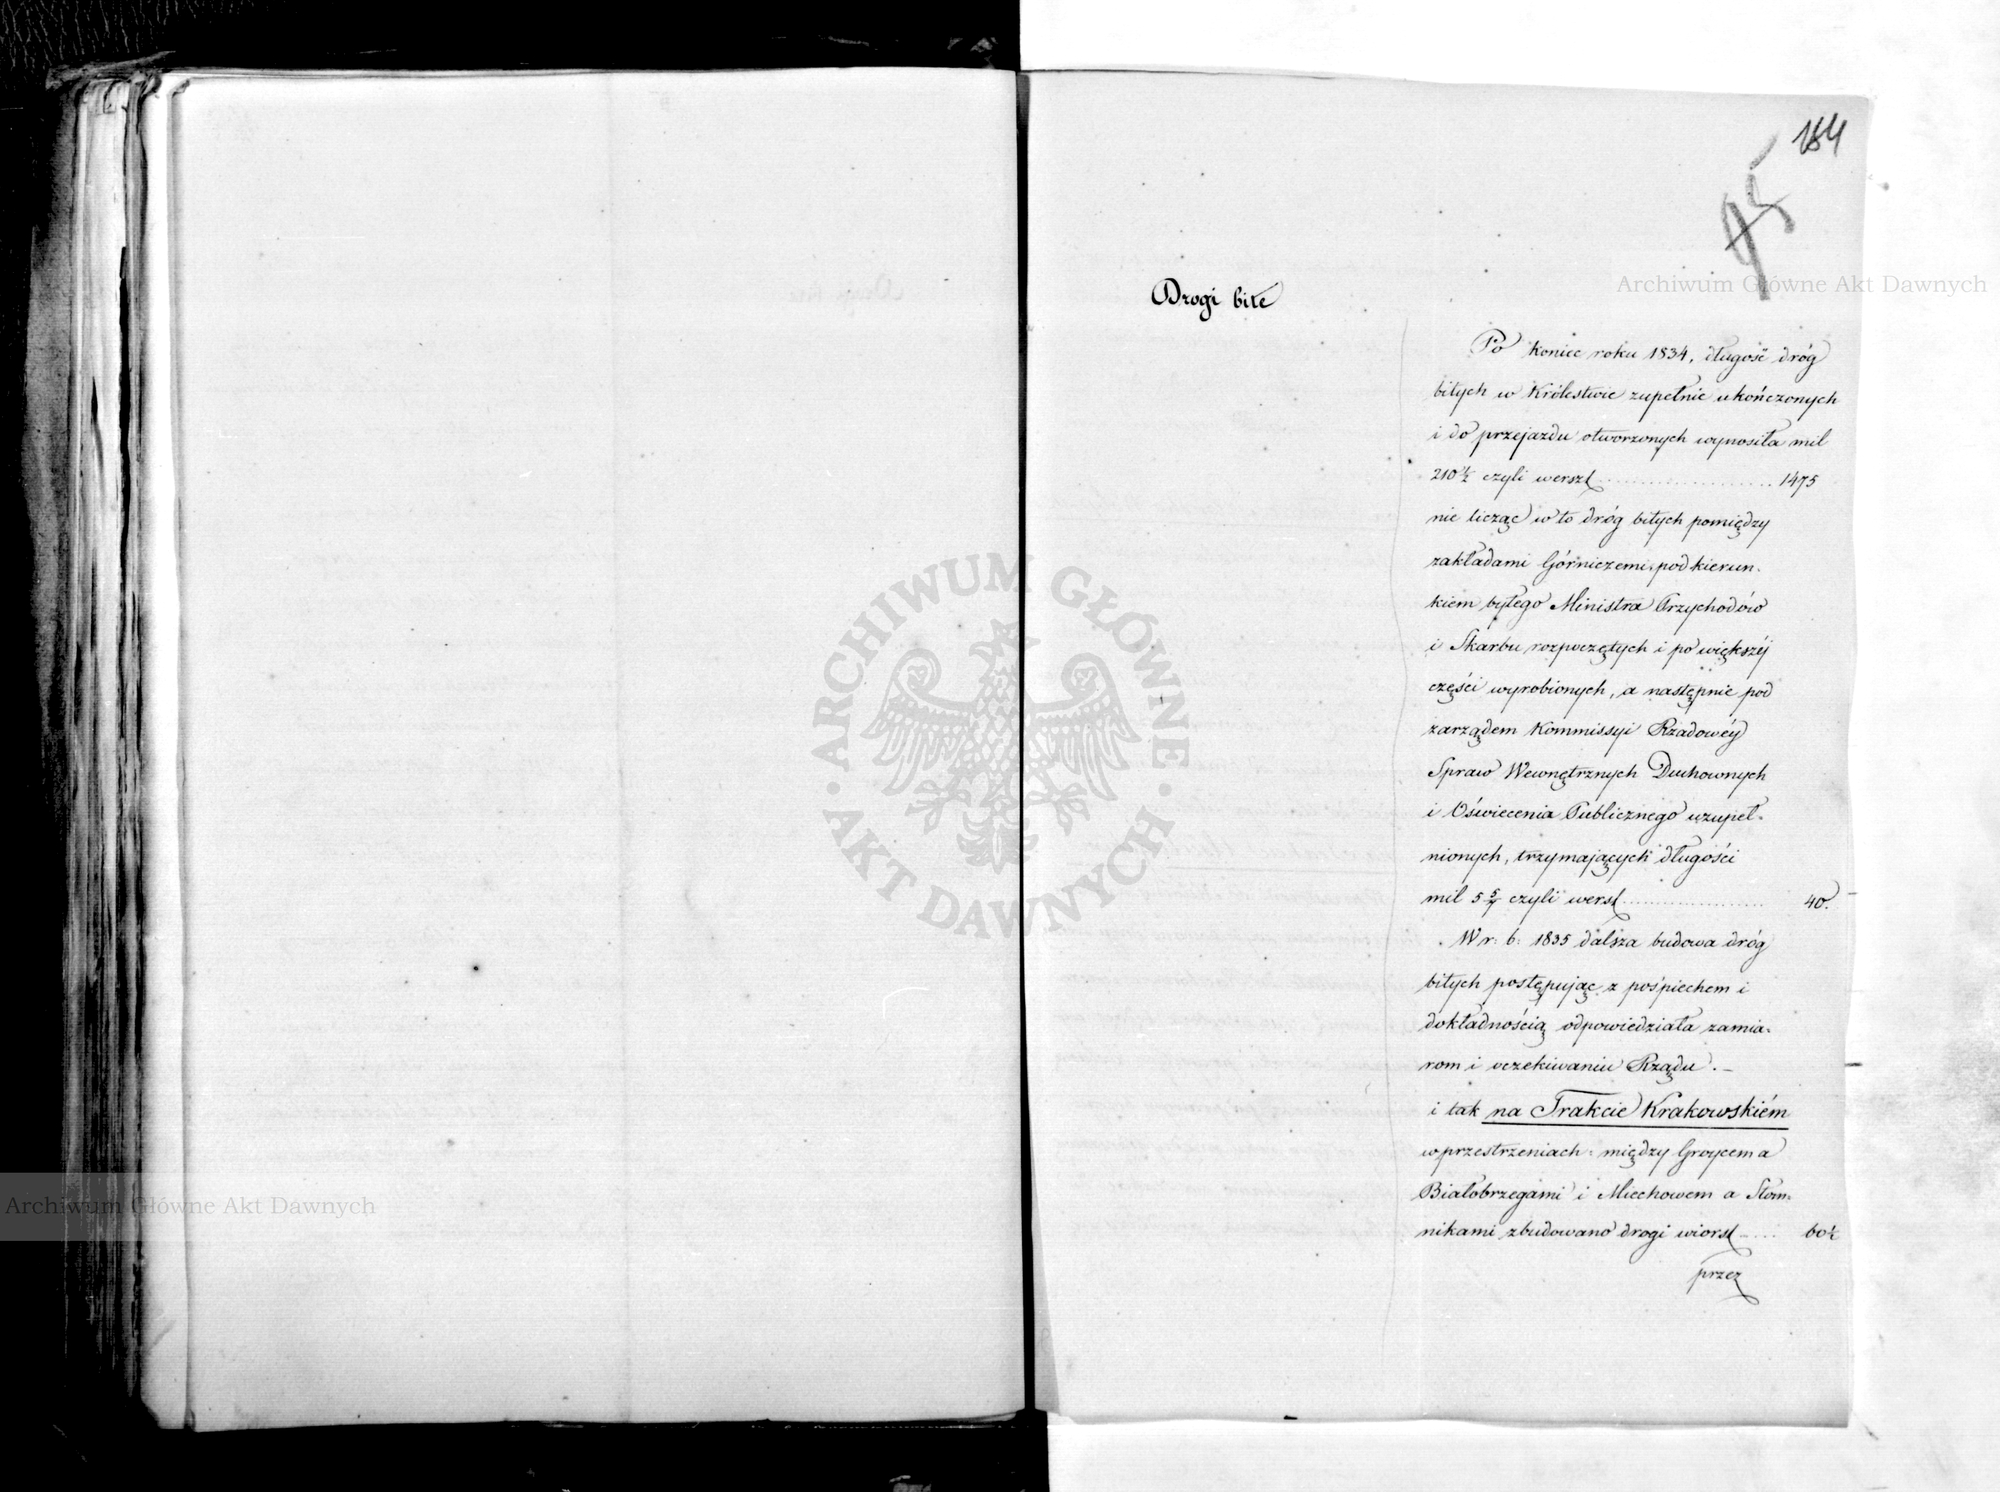 184
95
Drogi bite
Po koniec roku 1834, długość dróg
bitych w Królestwie zupełnie ukończonych
i do przejazdu otworzonych wynosiła mil
210½ czyli werszt 1475
nie licząc w to dróg bitych pomiędzy
zakładami Górniczemi, pod kierun-
kiem byłego Ministra Przychodów
i Skarbu rozpoczętych i po większéj
części wyrobionych, a następnie pod
zarządem Kommissyi Rządowéy
Spraw Wewnętrznych Duchownych
i Oświecenia Publicznego uzupeł-
nionych, trzymających długości
mil 5 5/7 czyli werst 40.
W r: b: 1835 dalsza budowa dróg
bitych postępując z pośpiechem i
dokładnością odpowiedziała zamia-
rom i oczekiwaniu Rządu. –
i tak na Trakcie Krakowskiém
w przestrzeniach: między Groycem a
Białobrzegami i Miechowem a Słom-
nikami zbudowano drogi wiorst 60½
przez
Archiwum Główne Akt Dawnych
Archiwum Główne Akt Dawnych
ARCHIWUM GŁÓWNE
AKT DAWNYCH